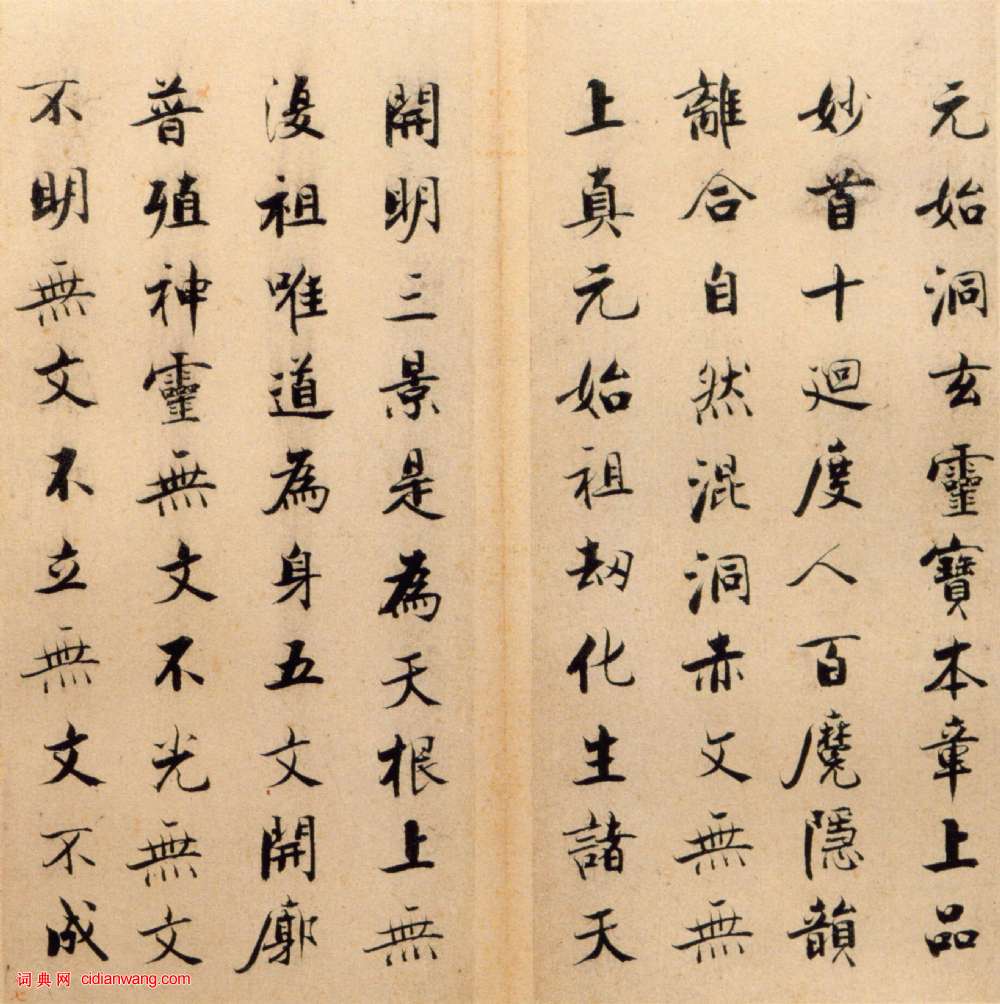 元始洞玄靈寶本章上品
妙首十迴度人百魔隱韻
離合自然混洞赤文無無
上真元始祖劫化生諸天
開明三景是為天根上無
復祖唯道為身五文開廓
普殖神靈無文不光無文
不明無文不立無文不成
词典网 cidianwang.com